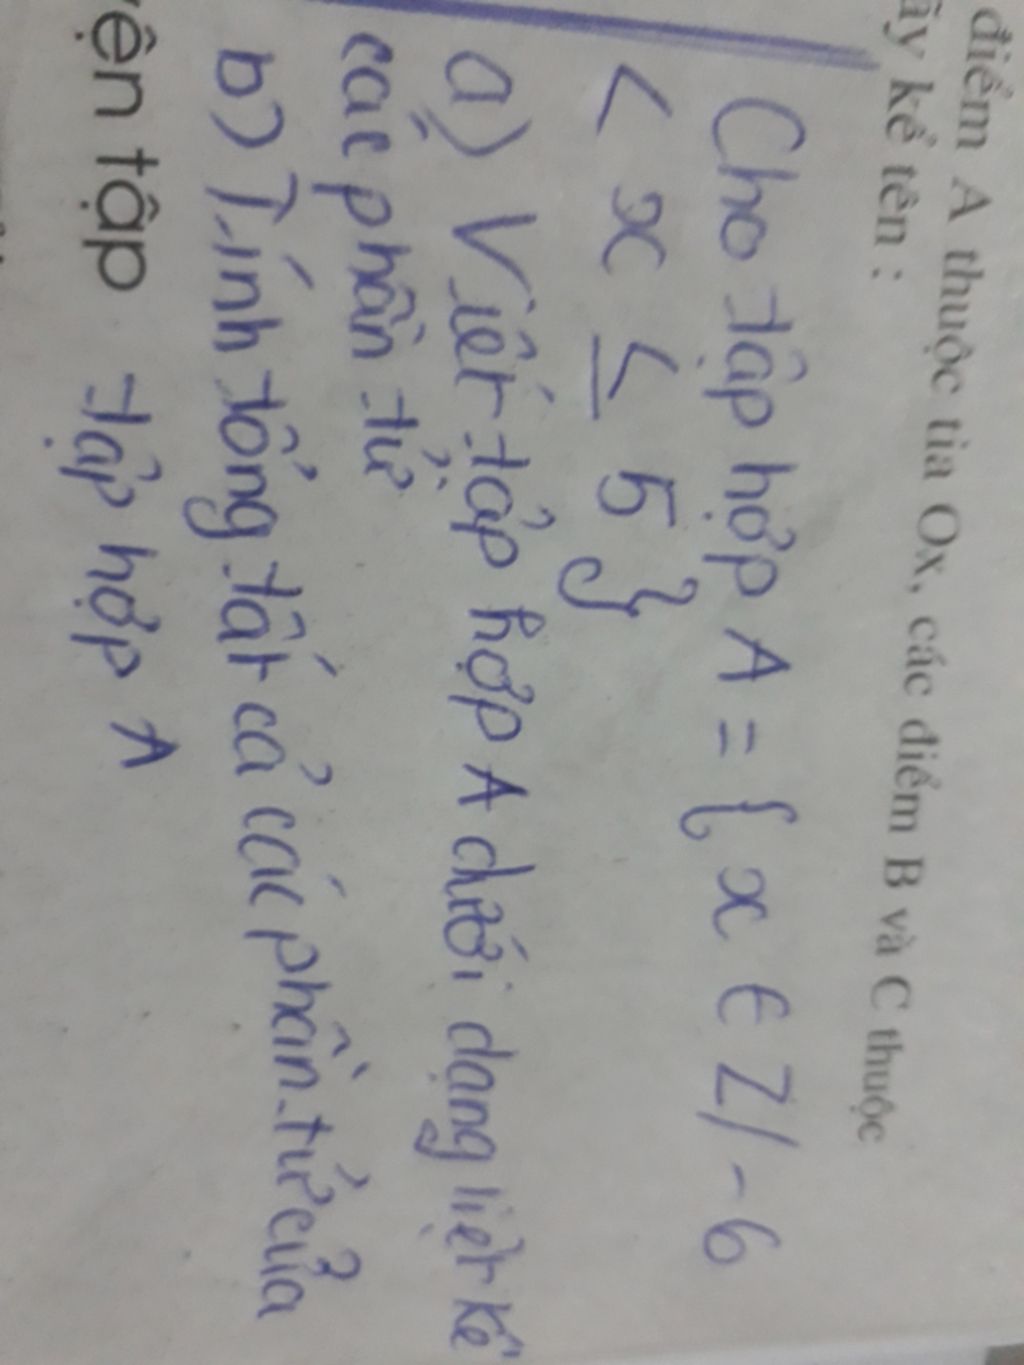 điểm A thuộc tia Ox, các điểm B và C thuộc
ãy kể tên :
Cho tập hợp A = { x ∈ Z / - 6
< x ≤ 5 }
a) Viết tập hợp A dưới dạng liệt kê
các phần tử
b) Tính tổng tất cả các phần tử của
yện tập tập hợp A